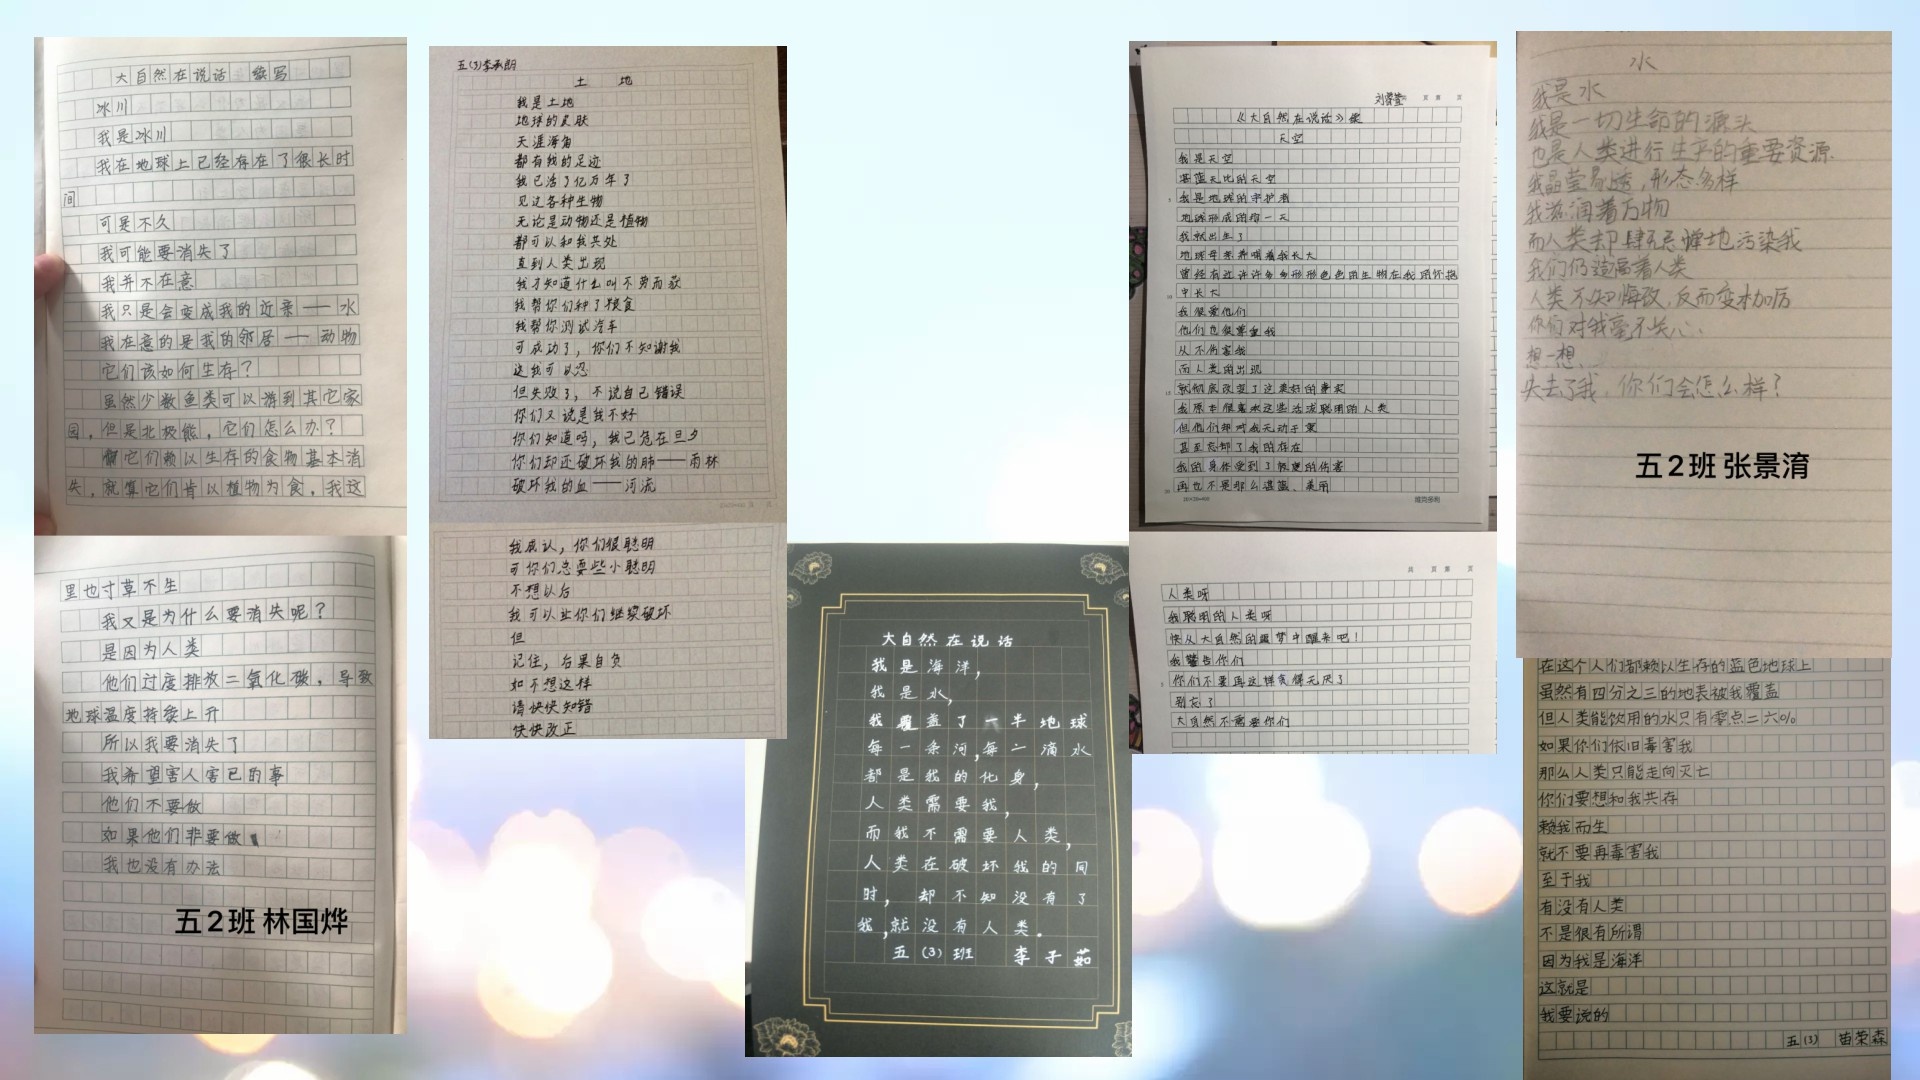 大自然在说话 续写
冰川
我是冰川
我在地球上已经存在了很长时
间
可是不久
我可能要消失了
我并不在意
我只是会变成我的近亲——水
我在意的是我的邻居——动物
它们该如何生存？
虽然少数鱼类可以游到其它家
园，但是北极熊，它们怎么办？
它们赖以生存的食物基本消
失，就算它们肯以植物为食，我这
里也寸草不生
我又是为什么要消失呢？
是因为人类
他们过度排放二氧化碳，导致
地球温度持续上升
所以我要消失了
我希望害人害己的事
他们不要做
如果他们非要做
我也没有办法
五2班 林国烨
五(3)李承朗
土 地
我是土地
地球的皮肤
天涯海角
都有我的足迹
我已活了亿万年了
见过各种生物
无论是动物还是植物
都可以和我共处
直到人类出现
我才知道什么叫不劳而获
我帮你们种了粮食
我帮你测试汽车
可成功了，你们不知谢我
这我可以忍
但失败了，不说自己错误
你们又说是我不好
你们知道吗，我已危在旦夕
你们却还破坏我的肺——雨林
破坏我的血——河流
我承认，你们很聪明
可你们总耍些小聪明
不想以后
我可以让你们继续破坏
但
记住，后果自负
如不想这样
请快快知错
快快改正
大自然在说话
我是海洋，
我是水，
我覆盖了一半地球
每一条河，每一滴水
都是我的化身，
人类需要我，
而我不需要人类，
人类在破坏我的同
时，却不知没有了
我，就没有人类。
五(3)班 李子茹
《大自然在说话》续
天空
我是天空
湛蓝无比的天空
我是地球的守护者
地球形成的有一天
我就出生了
地球母亲养哺着我长大
曾经有过许许多多形形色色的生物在我的怀抱
中长大
我很爱他们
他们也很尊重我
从不伤害我
而人类的出现
就彻底改变了这美好的事实
我原本很喜欢这些活泼聪明的人类
但他们却对我无动于衷
甚至忘却了我的存在
我的身体受到了严重的伤害
再也不是那么湛蓝、美丽
人类呀
我聪明的人类呀
快从大自然的噩梦中醒来吧！
我警告你们
你们不要再这样贪得无厌了
别忘了
大自然不需要你们
水
我是水
我是一切生命的源头
也是人类进行生产的重要资源.
我晶莹易透，形态多样
我滋润着万物
而人类却肆无忌惮地污染我
我们仍造福着人类
人类不知悔改，反而变本加厉
你们对我毫不关心、
想一想、
失去了我，你们会怎么样？
五2班 张景淯
在这个人们都赖以生存的蓝色地球上
虽然有四分之三的地表被我覆盖
但人类能饮用的水只有零点二六%
如果你们依旧毒害我
那么人类只能走向灭亡
你们要想和我共存
赖我而生
就不要再毒害我
至于我
有没有人类
不是很有所谓
因为我是海洋
这就是
我要说的
五(3) 苗荣森